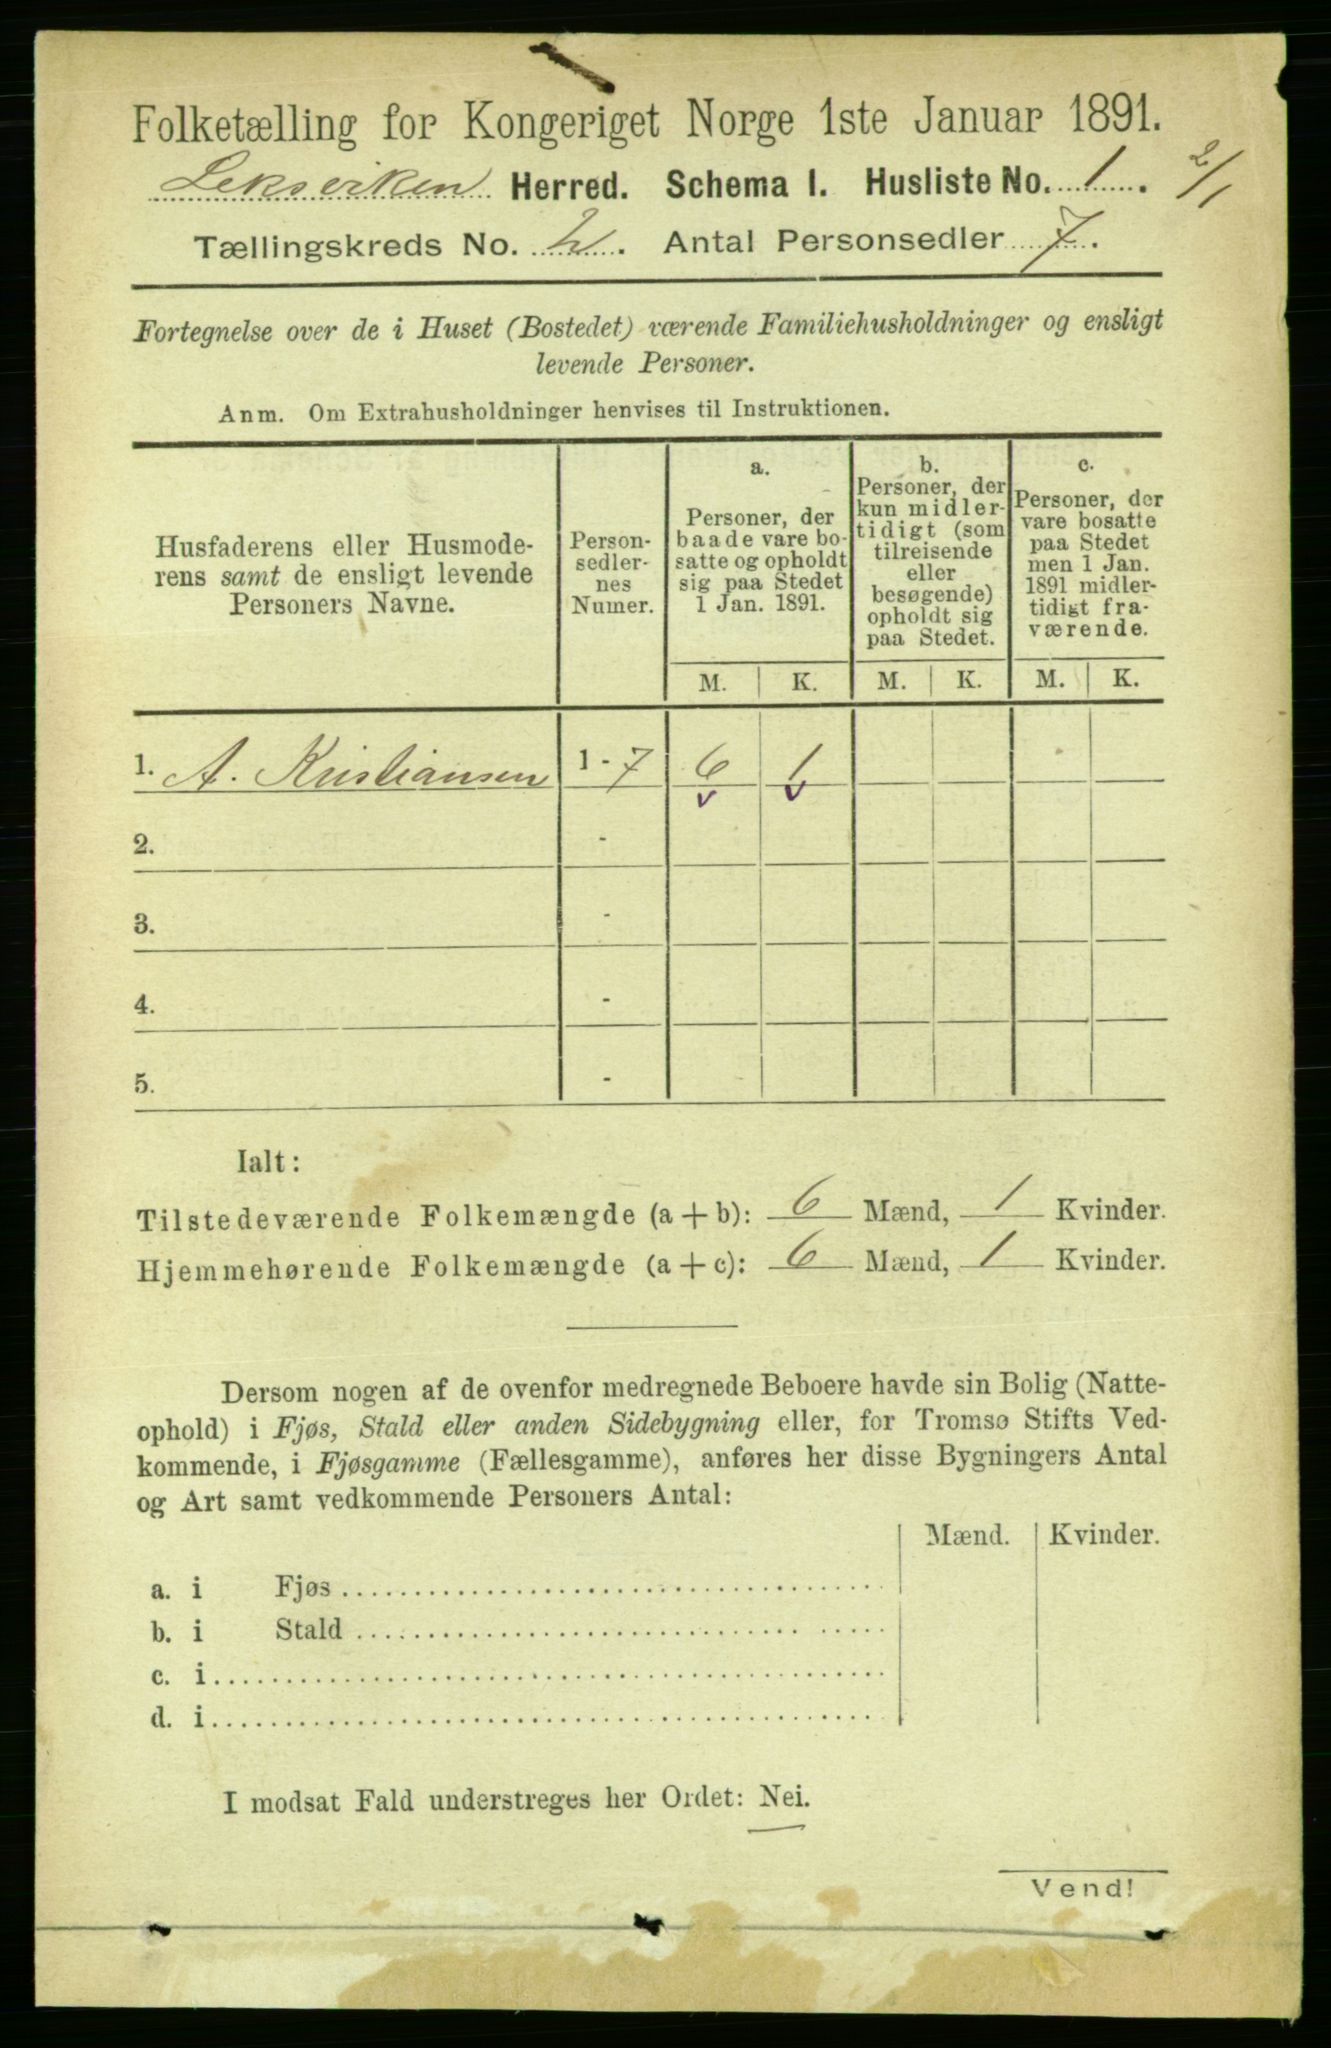 Folketælling for Kongeriget Norge 1ste Januar 1891.
Leksviken Herred. Schema I. Husliste No. 1.
2/1
Tællingskreds No. 2. Antal Personsedler 7.
Fortegnelse over de i Huset (Bostedet) værende Familiehusholdninger og ensligt
levende Personer.
Anm. Om Extrahusholdninger henvises til Instruktionen.
Husfaderens eller Husmode-
rens samt de ensligt levende
Personers Navne.
Person-
sedler-
nes
Numer.
a.
Personer, der
baade vare bo-
satte og opholdt
sig paa Stedet
1 Jan. 1891.
b.
Personer, der
kun midler-
tidigt (som
tilreisende
eller
besøgende)
opholdt sig
paa Stedet.
c.
Personer, der
vare bosatte
paa Stedet
men 1 Jan.
1891 midler-
tidigt fra-
værende.
M. K. M. K. M. K.
1. A. Kristiansen 1 - 7 6 1
v v
2. -
3. -
4. -
5. -
Ialt:
Tilstedeværende Folkemængde (a + b): 6 Mænd, 1 Kvinder.
Hjemmehørende Folkemængde (a + c): 6 Mænd, 1 Kvinder.
Dersom nogen af de ovenfor medregnede Beboere havde sin Bolig (Natte-
ophold) i Fjøs, Stald eller anden Sidebygning eller, for Tromsø Stifts Ved-
kommende, i Fjøsgamme (Fællesgamme), anføres her disse Bygningers Antal
og Art samt vedkommende Personers Antal:
Mænd. Kvinder.
a. i Fjøs
b. i Stald
c. i
d. i
I modsat Fald understreges her Ordet: Nei.
Vend!